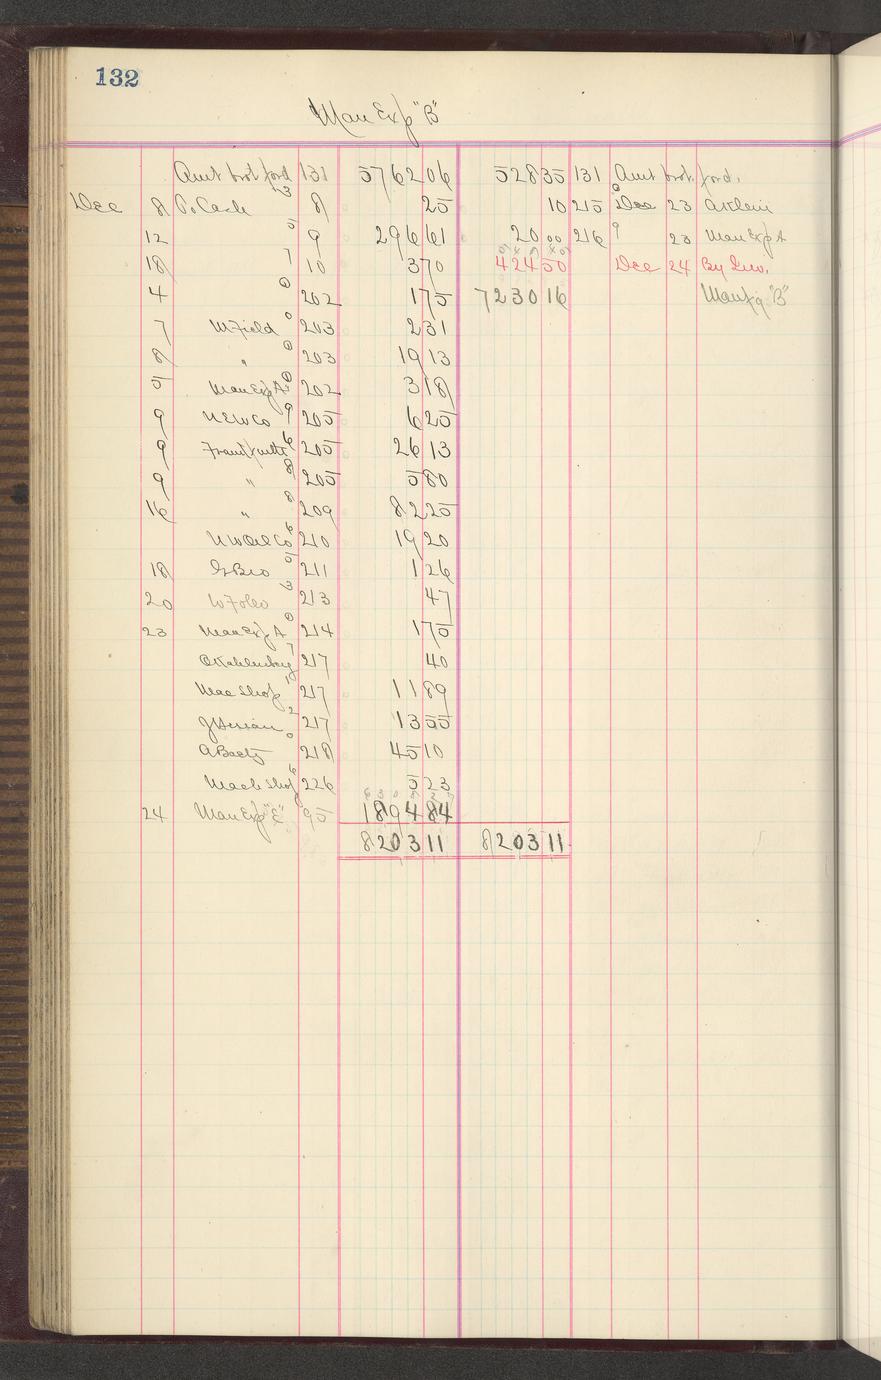 132
Man Exp "B"
Amt brot ford 131 5762 06 528 35 131 Amt brot. ford.
Dec 8 P. Cash 3 8 25 10 215 Dec 23
12 5 9 296 61 20 00 216 9 23 Man Exp A
18 7 10 3 70 424 50 Dec 24 By Inv.
4 0 202 1 75 7230 16 Manfg "B"
7 M Field 0 203 2 31
8 " 0 203 19 13
5 Man Exp A 0 202 3 18
9 N E W Co 9 205 6 25
9 6 205 26 13
9 " 8 205 5 80
16 " 8 209 82 25
N W Oil Co 6 210 19 20
18 5 211 1 26
20 3 213 47
23 Man Exp A 0 214 1 75
7 217 40
Mac Shop 1 217 11 89
2 217 13 55
0 218 45 10
Mach Shop 6 226 5 23
24 Man Exp "E" 95 1894 84
8203 11 8203 11